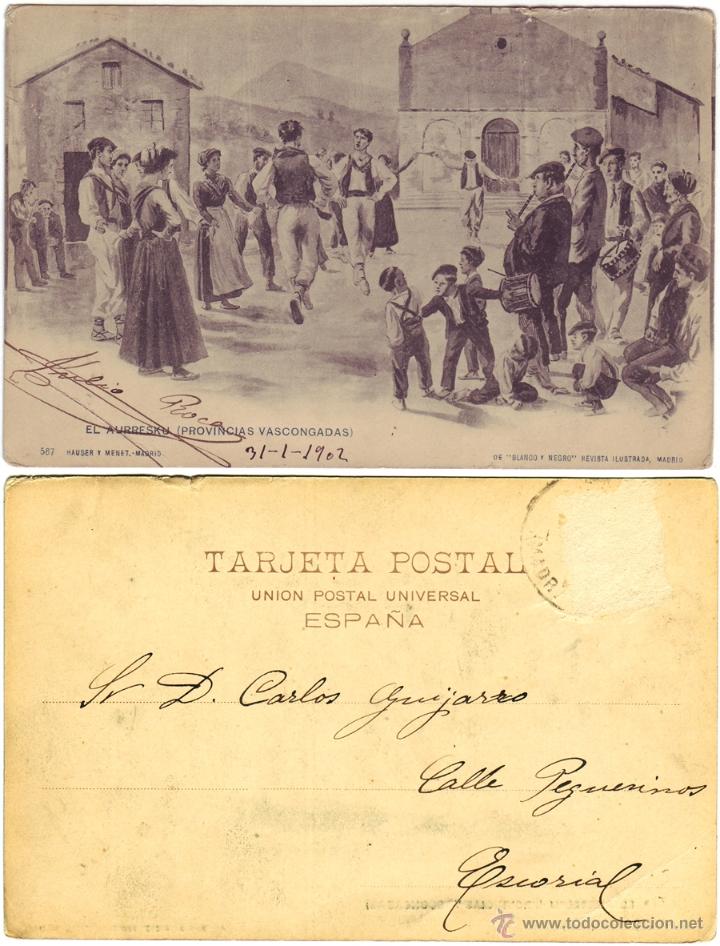 Julio Roca
EL AURRESKU (PROVINCIAS VASCONGADAS)
31-1-1902
587 HAUSER Y MENET.-MADRID.
DE "BLANCO Y NEGRO" REVISTA ILUSTRADA, MADRID
TARJETA POSTAL
UNION POSTAL UNIVERSAL
ESPAÑA
MADR
Sr D. Carlos Guijarro
Calle Peguerinos
Escorial
todocoleccion.net